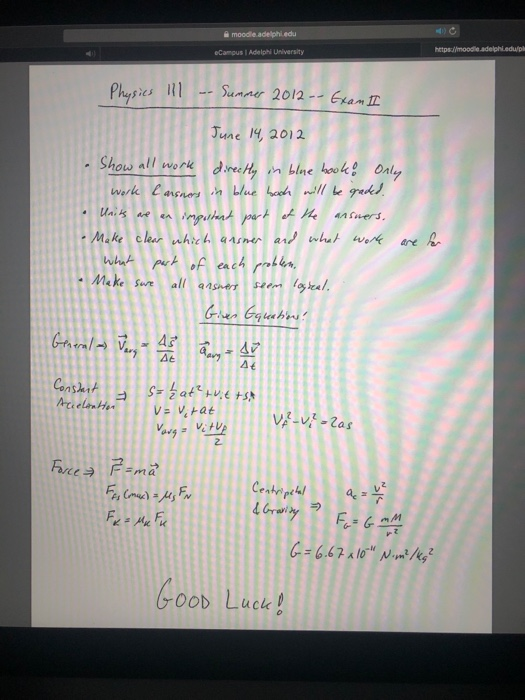 moodle.adelphi.edu
eCampus | Adelphi University
https://moodle.adelphi.edu/pl
Physics 111 -- Summer 2012 -- Exam II
June 14, 2012
• Show all work directly in blue book! Only
work & answers in blue book will be graded.
• Units are an important part of the answers.
• Make clear which answer and what work are for
what part of each problem.
• Make sure all answers seem logical.
Given Equations:
General ⇒ v⃗avg = Δs⃗/Δt    a⃗avg = Δv⃗/Δt
Constant Acceleration ⇒ s = ½at² + vᵢt + sᵢ
v = vᵢ + at
vavg = (vᵢ + vf)/2    vf² - vᵢ² = 2as
Force ⇒ F⃗ = ma⃗
Ffs (max) = μs FN
Fk = μk FN
Centripetal & Gravity ⇒ ac = v²/r
FG = G mM/r²
G = 6.67 x 10⁻¹¹ N·m²/kg²
GOOD LUCK!